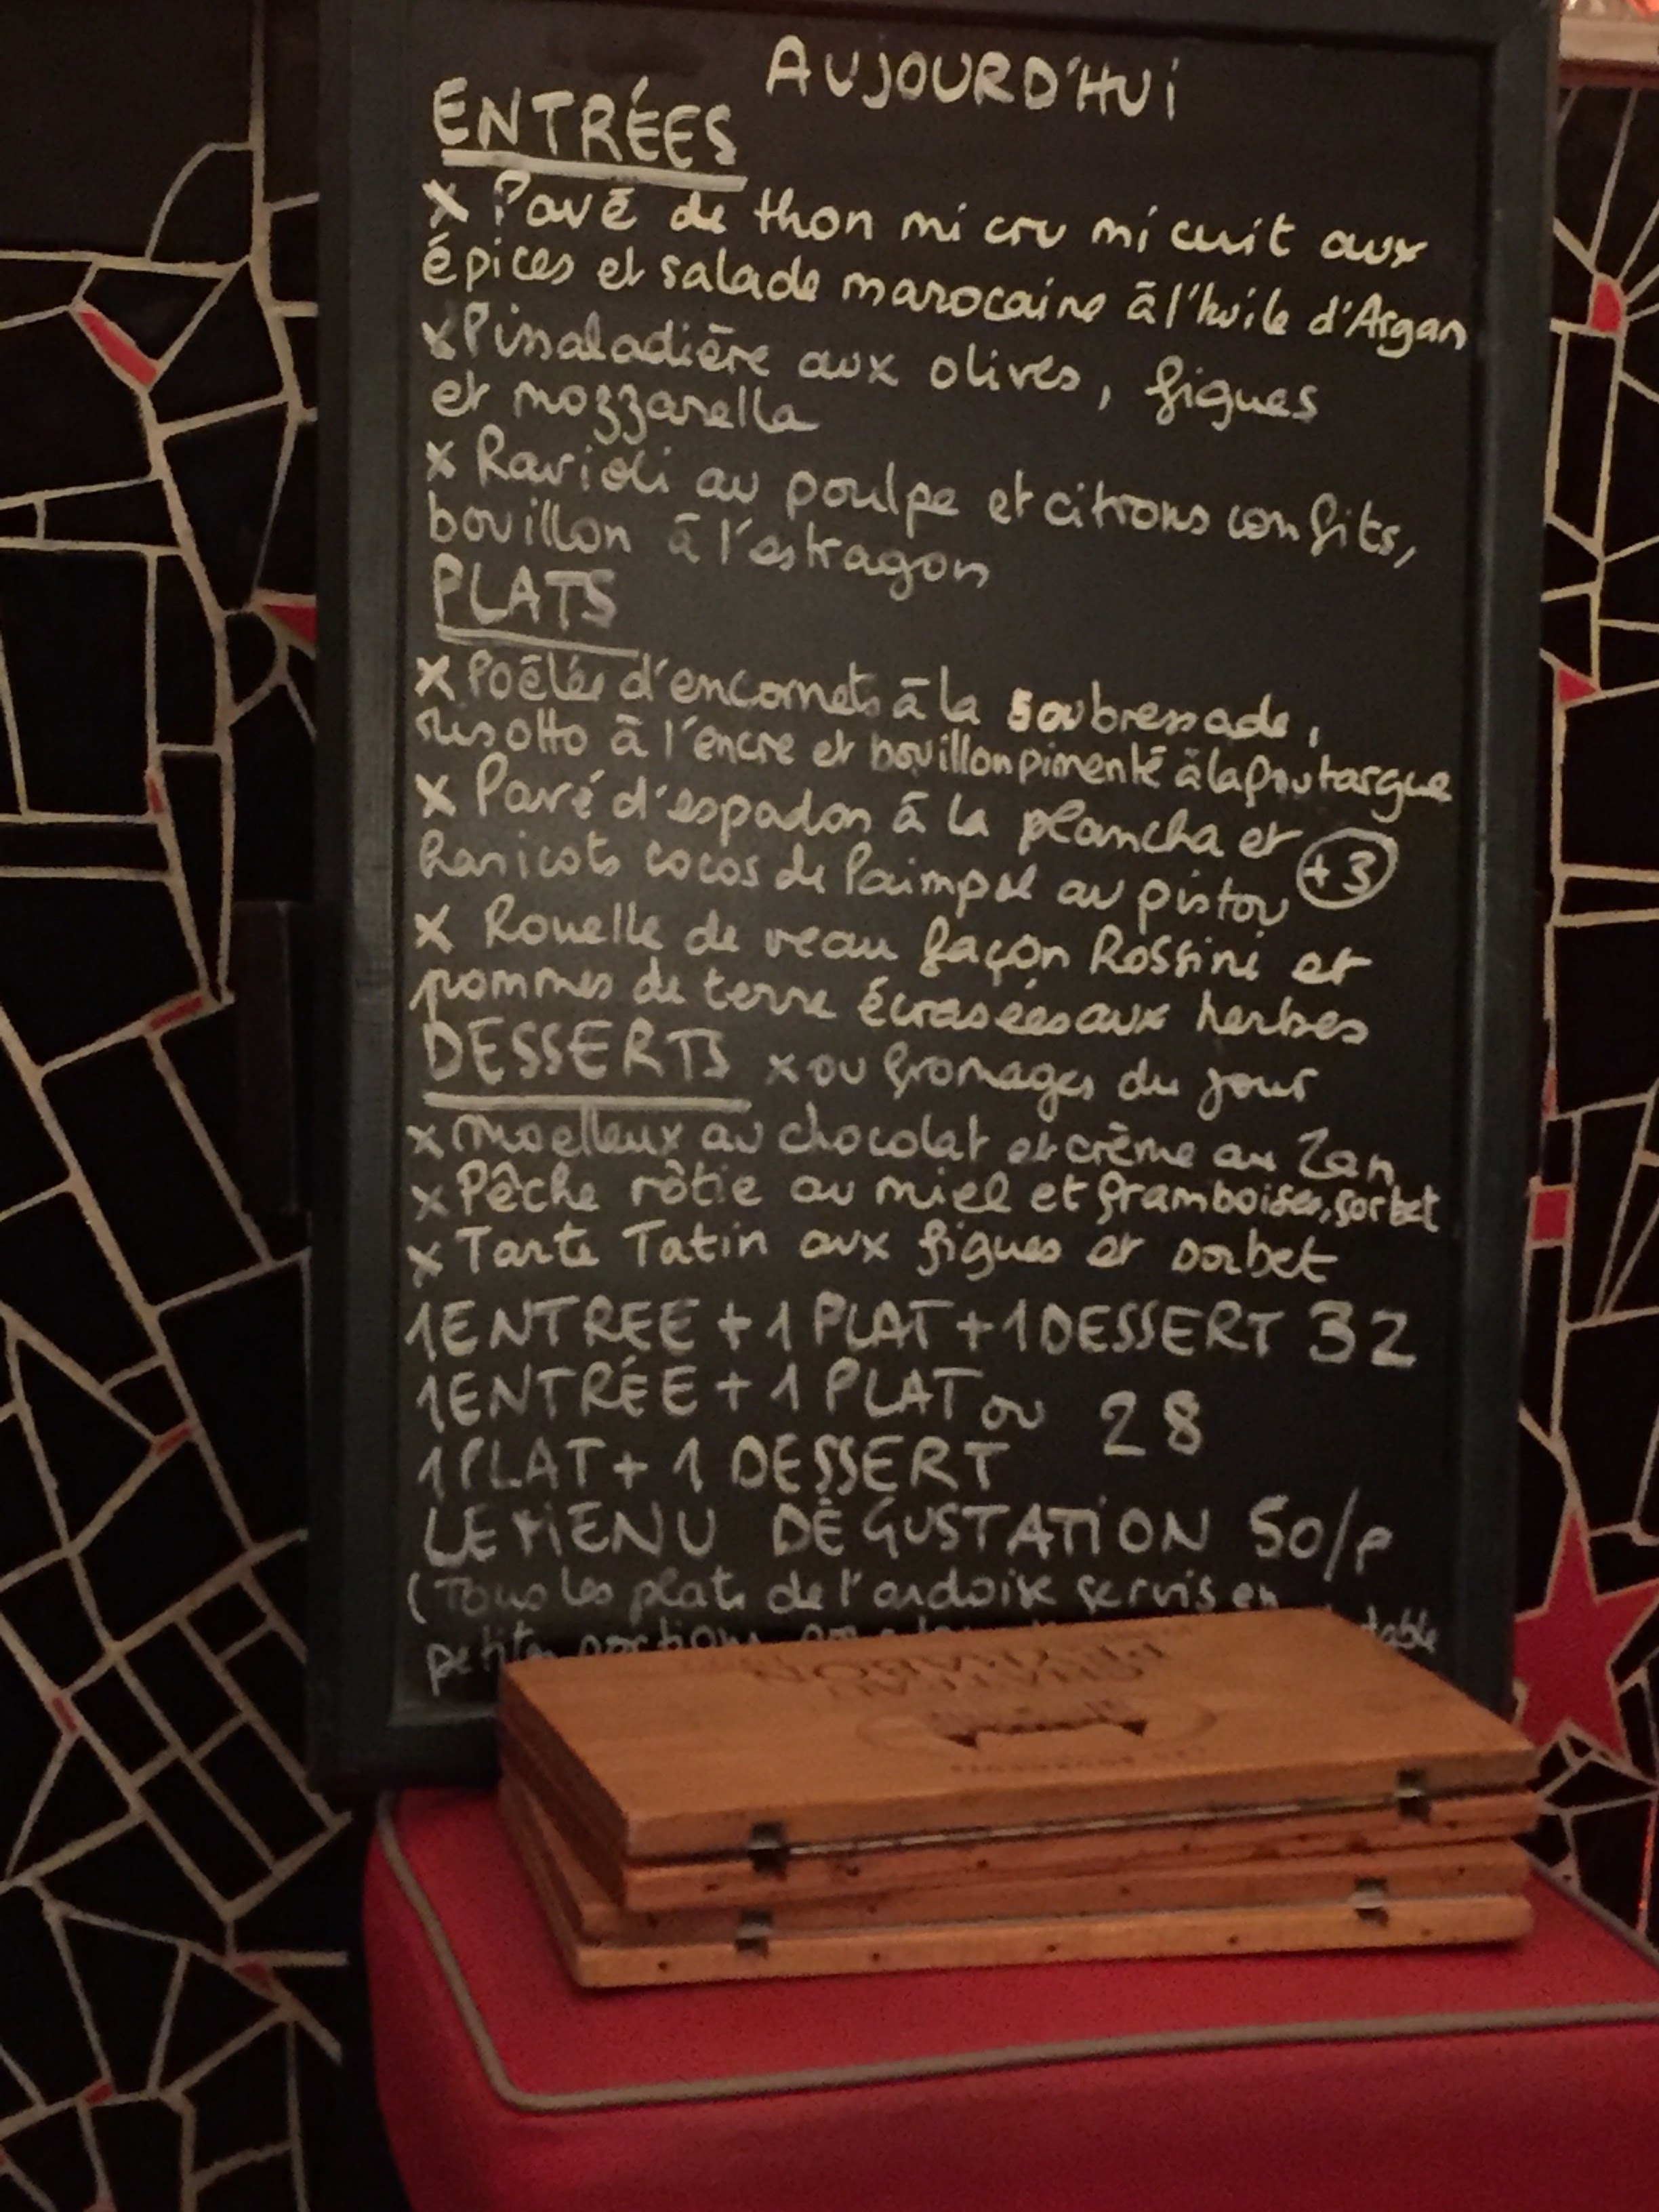 AUJOURD'HUi
ENTRÉES
x Pavé de thon mi cru mi cuit aux
épices et salade marocaine à l'huile d'Argan
x Pissaladière aux olives, figues
et mozzarella
x Ravioli au poulpe et citrons confits,
bouillon à l'estragon
PLATS
x Poêlée d'encornets à la soubressade,
risotto à l'encre et bouillon pimenté à la Poutargue
x Pavé d'espadon à la plancha et +3
haricots cocos de Paimpol au pistou
x Rouelle de veau façon Rossini et
pommes de terre écrasées aux herbes
DESSERTS x ou fromages du jour
x Moelleux au chocolat et crème au Zan
x Pêche rôtie au miel et framboises, sorbet
x Tarte Tatin aux figues et sorbet
1 ENTREE + 1 PLAT + 1 DESSERT 32
1 ENTRÉE + 1 PLAT ou 28
1 PLAT + 1 DESSERT
LE MENU DÉGUSTATiON 50/p
(Tous les plats de l'ardoise servis en
petites portions table